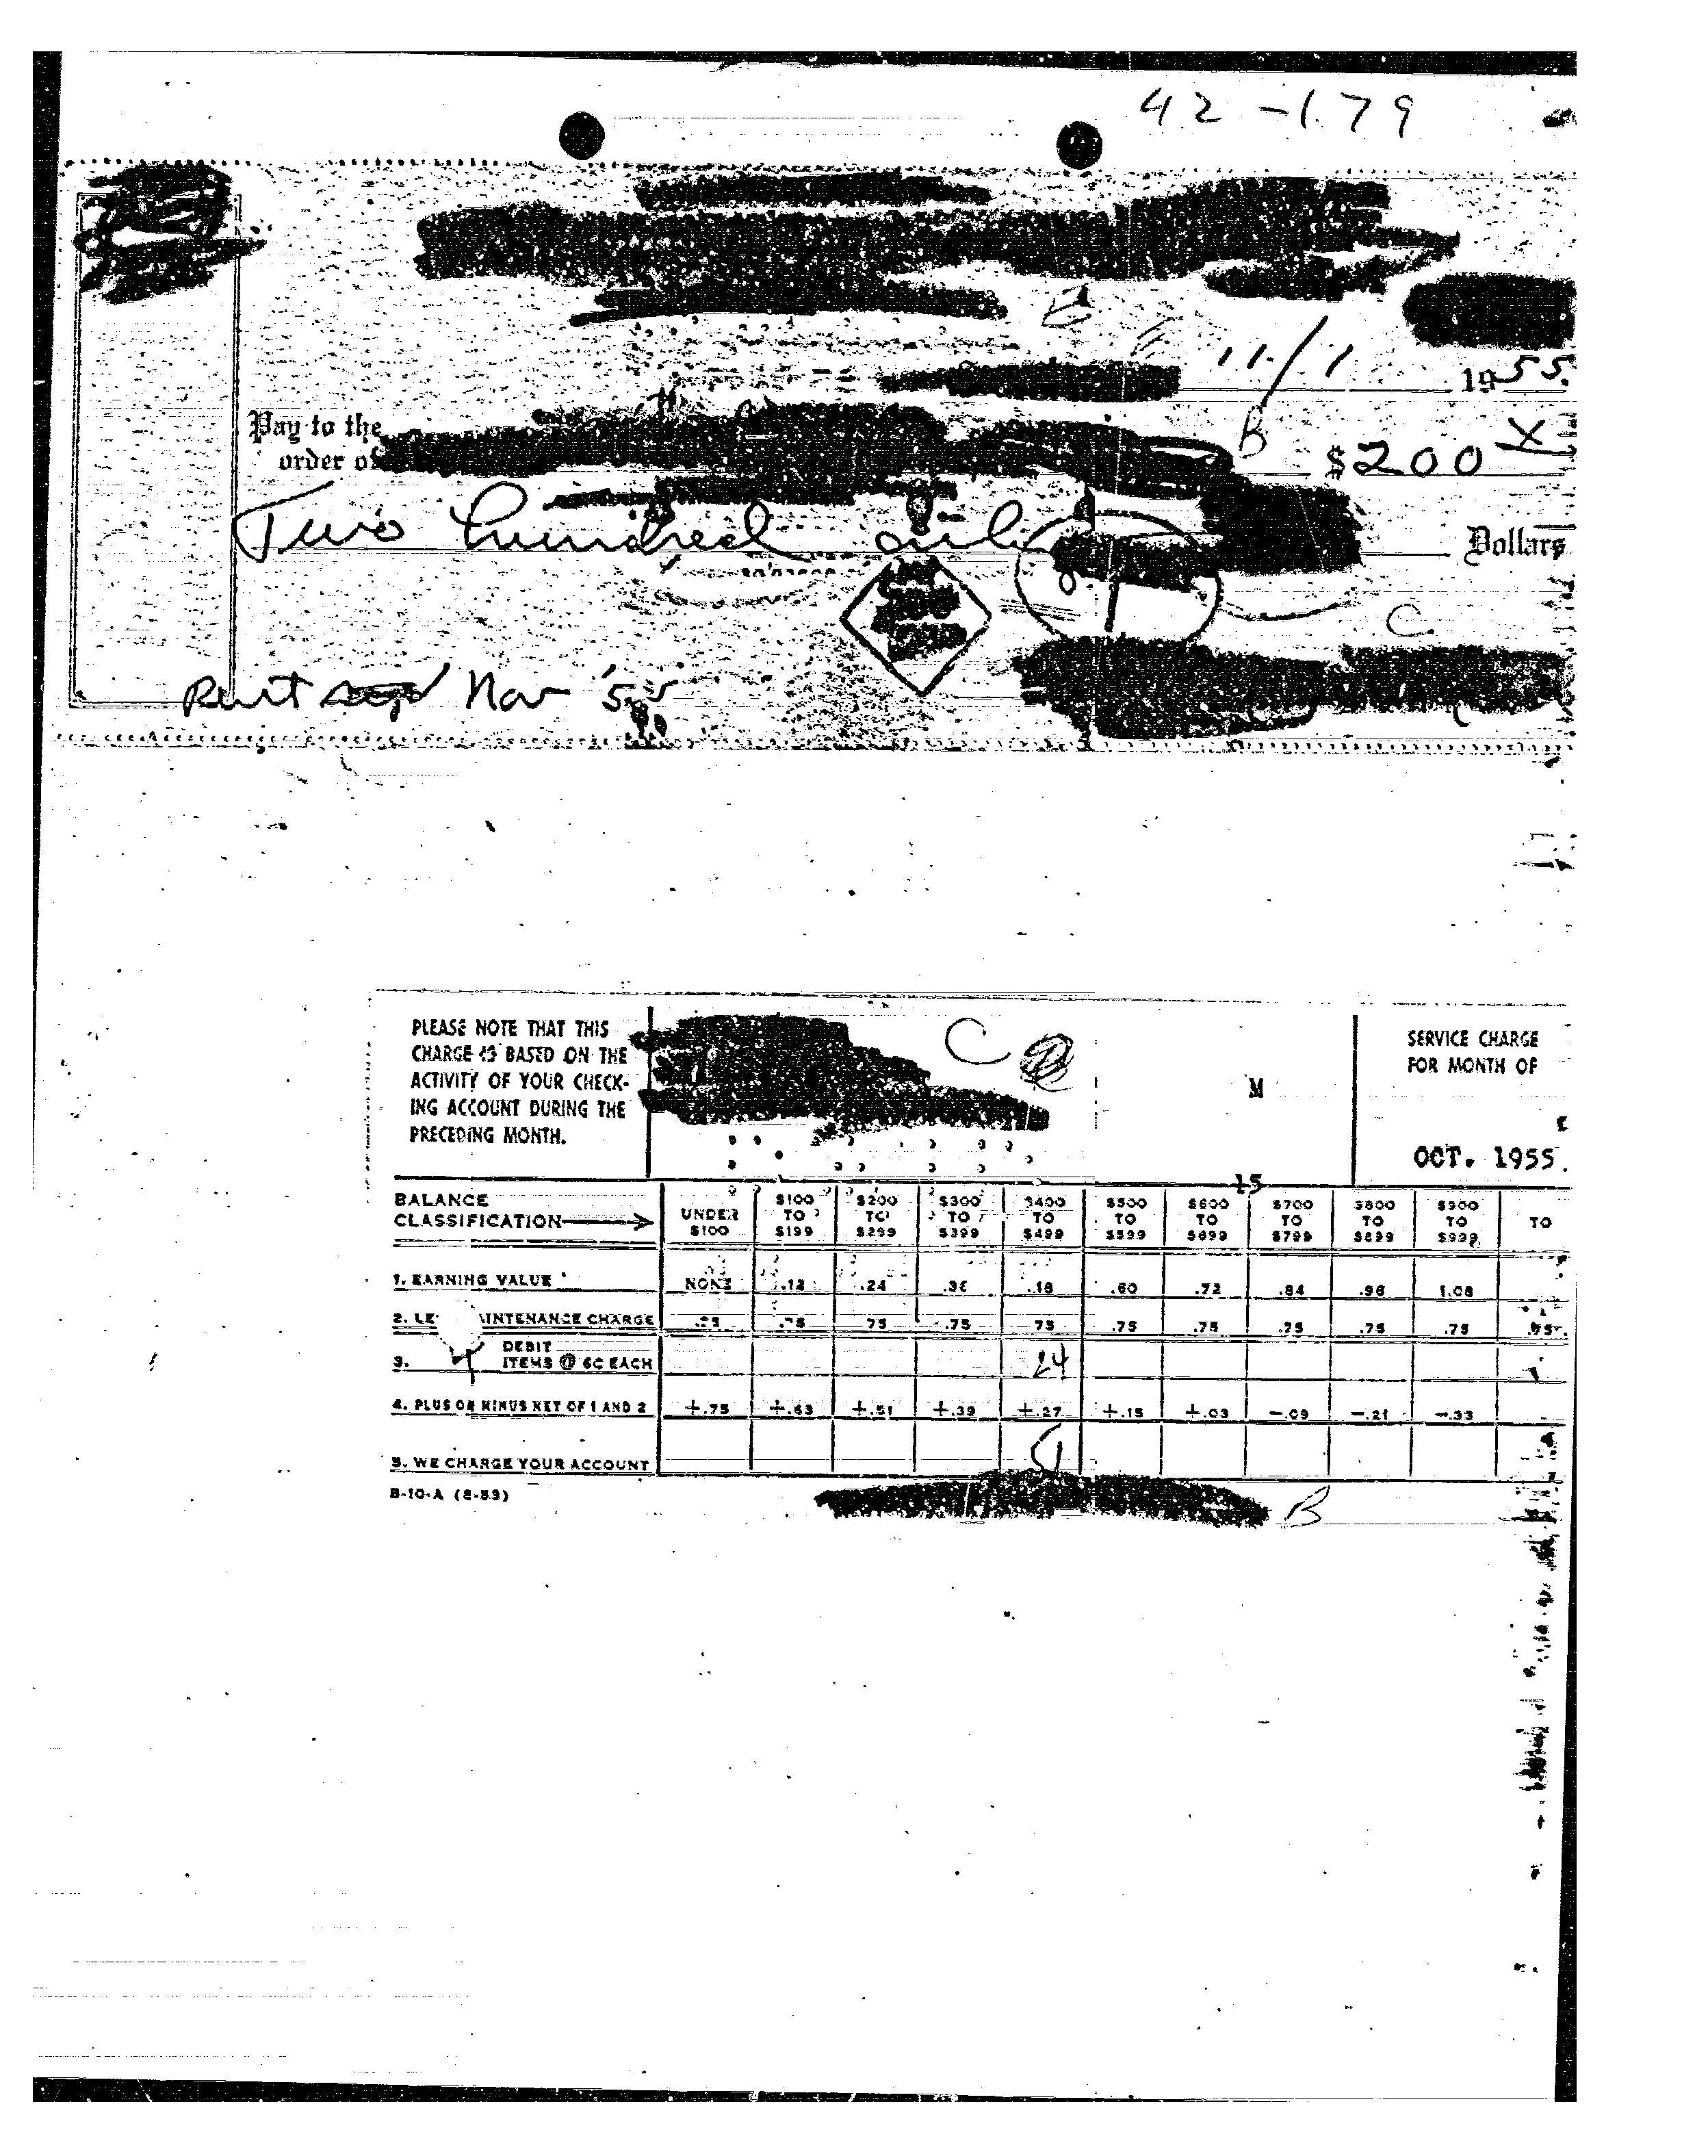 42-179
11/1 1955.
Pay to the
order of
B $200 X
Two hundred only
Dollars
C
Rent Nov '55
PLEASE NOTE THAT THIS
CHARGE IS BASED ON THE
ACTIVITY OF YOUR CHECK-
ING ACCOUNT DURING THE
PRECEDING MONTH.
C
M
SERVICE CHARGE
FOR MONTH OF
OCT. 1955
15
BALANCE CLASSIFICATION UNDER $100 $100 TO $199 $200 TO $299 $300 TO $399 $400 TO $499 $500 TO $599 $600 TO $699 $700 TO $799 $800 TO $899 $900 TO $999 TO
1. EARNING VALUE NONE .12 .24 .36 .48 .60 .72 .84 .96 1.08
2. LE INTENANCE CHARGE .75 .75 .75 .75 .75 .75 .75 .75 .75 .75 .75
3. DEBIT ITEMS @ 6C EACH 24
4. PLUS OR MINUS NET OF 1 AND 2 +.75 +.63 +.51 +.39 +.27 +.15 +.03 -.09 -.21 -.33
5. WE CHARGE YOUR ACCOUNT
B-10-A (8-53)
B